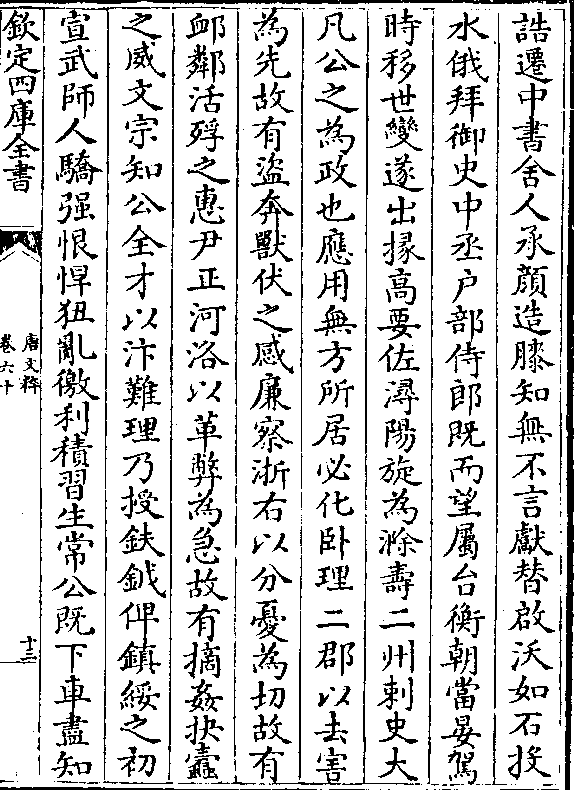 誥遷中書舍人承顔造膝知無不言獻替啟沃如石投
水俄拜御史中丞户部侍郎既而望屬台衡朝當晏駕
時移世變遂出掾高要佐潯陽旋為滁壽二州刺史大
凡公之為政也應用無方所居必化卧理二郡以去害
為先故有盜奔獸伏之感廉察浙右以分憂為切故有
䘏鄰活殍之惠尹正河洛以革弊為急故有摘姦抉蠹
之威文宗知公全才以汴難理乃授鈇鉞俾鎮綏之初
宣武師人驕强恨悍狃亂徼利積習生常公既下車盡知
欽定四庫全書
唐文粹
卷六十
十三